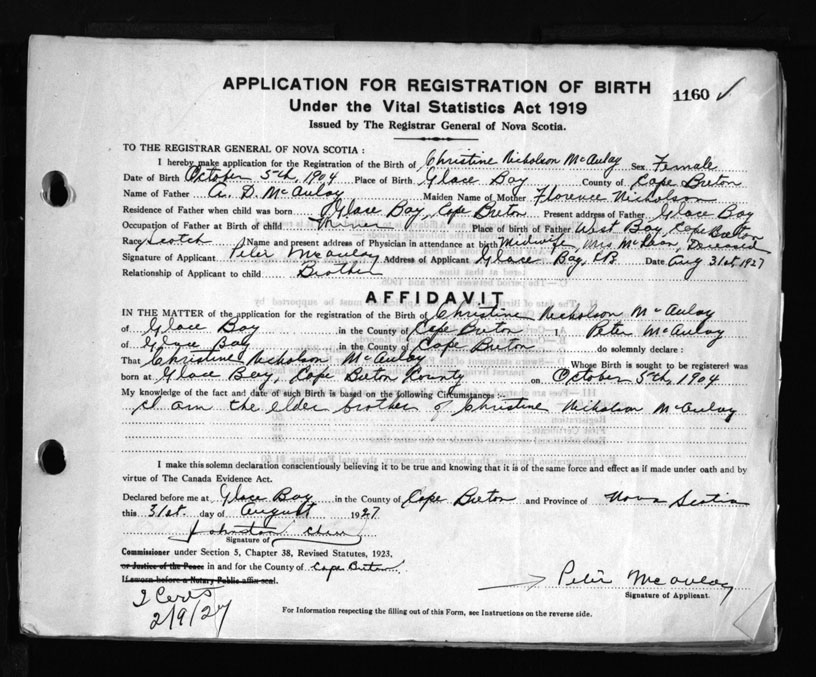 APPLICATION FOR REGISTRATION OF BIRTH
1160 ✓
Under the Vital Statistics Act 1919
Issued by The Registrar General of Nova Scotia.
TO THE REGISTRAR GENERAL OF NOVA SCOTIA :
I hereby make application for the Registration of the Birth of Christine Nicholson McAulay Sex Female
Date of Birth October 5th, 1904 Place of Birth Glace Bay County of Cape Breton
Name of Father A. D. McAulay Maiden Name of Mother Florence Nicholson
Residence of Father when child was born Glace Bay, Cape Breton Present address of Father Glace Bay
Occupation of Father at Birth of child Miner Place of birth of Father West Bay, Cape Breton
Race Scotch Name and present address of Physician in attendance at birth Midwife, Mrs Deceased
Signature of Applicant Peter McAulay Address of Applicant Glace Bay, C.B. Date Aug 31st, 1927
Relationship of Applicant to child Brother
AFFIDAVIT
IN THE MATTER of the application for the registration of the Birth of Christine Nicholson McAulay
of Glace Bay in the County of Cape Breton I, Peter McAulay
of Glace Bay in the County of Cape Breton do solemnly declare :
That Christine Nicholson McAulay Whose Birth is sought to be registered was
born at Glace Bay, Cape Breton County on October 5th, 1904
My knowledge of the fact and date of such Birth is based on the following Circumstances :--
I am the elder brother of Christine Nicholson McAulay
I make this solemn declaration conscientiously believing it to be true and knowing that it is of the same force and effect as if made under oath and by
virtue of The Canada Evidence Act.
Declared before me at Glace Bay in the County of Cape Breton and Province of Nova Scotia
this 31st. day of August 1927
Johnston
Signature of
Commissioner under Section 5, Chapter 38, Revised Statutes, 1923.
or Justice of the Peace in and for the County of Cape Breton
If sworn before a Notary Public affix seal.
Peter McAulay
Signature of Applicant.
2 Certs
2/9/27
For Information respecting the filling out of this Form, see Instructions on the reverse side.